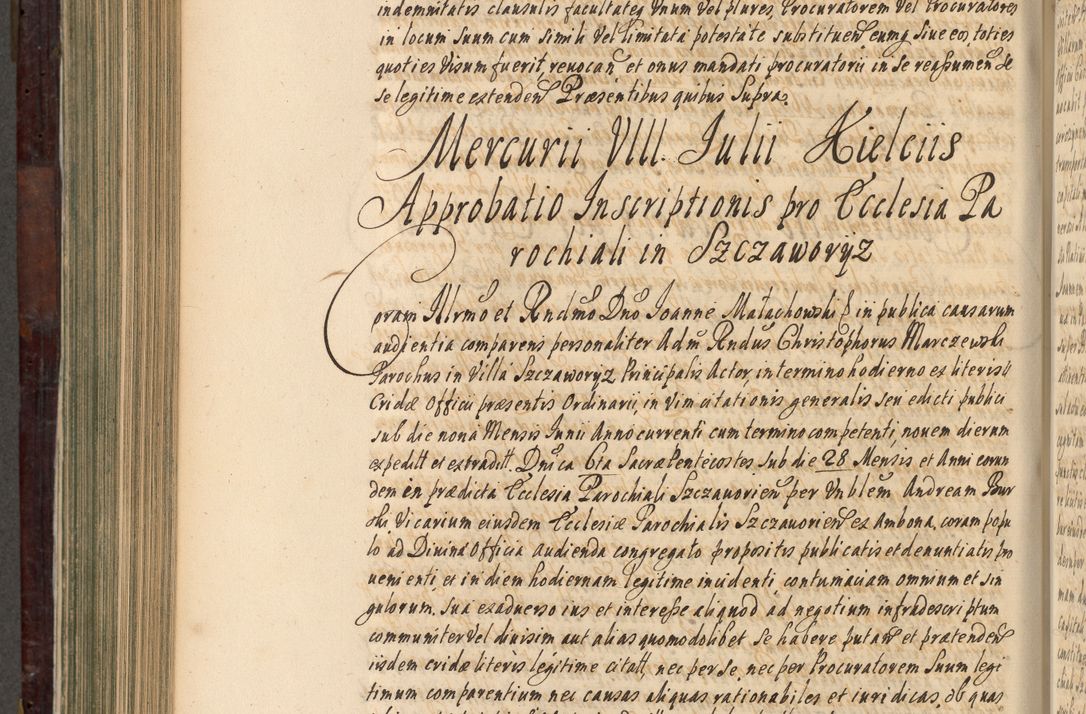 indemnitatis clausulis facultateq Unum Vel plures Procuratorem Vel Procuratores
in locum Suum cum Simili Vel limitata potestate substituen eumq Siue eos, toties
quoties Visum fuerit, reuocan et onus mandati procuratorii in Se reaßumen de
Se legitime extenden Præsentibus quibus Supra.
Mercurii VIII. Iulii Kielciis
Approbatio Inscriptionis pro Ecclesia Pa
rochiali in Szczaworyz
Coram Illrmo et Rndmo Dno Ioanne Małachowski in publica causarum
audientia comparens personaliter Adm Rndus Christophorus Marczewski
Parochus in Villa Szczaworyz Principalis Actor, in termino hodierno ex literis
Cridæ Officii præsentis Ordinarii, in Vim citationis generalis Seu edicti publici
sub die nona Mensis Iunii Anno currenti cum termino competenti, nouem dierum
expeditt et extraditt. Dnica 6ta Sacræ Pentecostes Sub die 28 Mensis et Anni eorun
dem in prædicta Ecclesia Parochiali Szczauorien per Vnblem Andream Bur
ski Vicarium eiusdem Ecclesiæ Parochialis Szczauorien ex Ambona, coram popu
lo ad Diuina Officia audienda congregato propositis publicatis et denuntiatis pro
uenienti, et in diem hodiernam legitime incidenti, contumaciam omnium et Sin
gulorum, Sua exaduerso ius et intereße aliquod ad negotium infradescriptum
communiter Vel diuisim aut alias quomodolibet Se habere putan et prætenden
iisdem cridæ literis legitime citatt, nec per Se, nec per Procuratorem Suum legi
timum comparentium nec causas aliquas rationabiles et iuridicas, ob quas